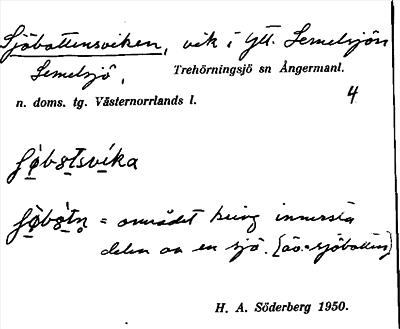 Sjöbottensviken, vik i Ytt. Lemelsjön
Lemelsjö. Trehörningsjö sn Ångermanl.
n. doms. tg. Västernorrlands l. 4
= området kring innersta
delen av en sjö. [äv. sjöbotten]
H. A. Söderberg 1950.